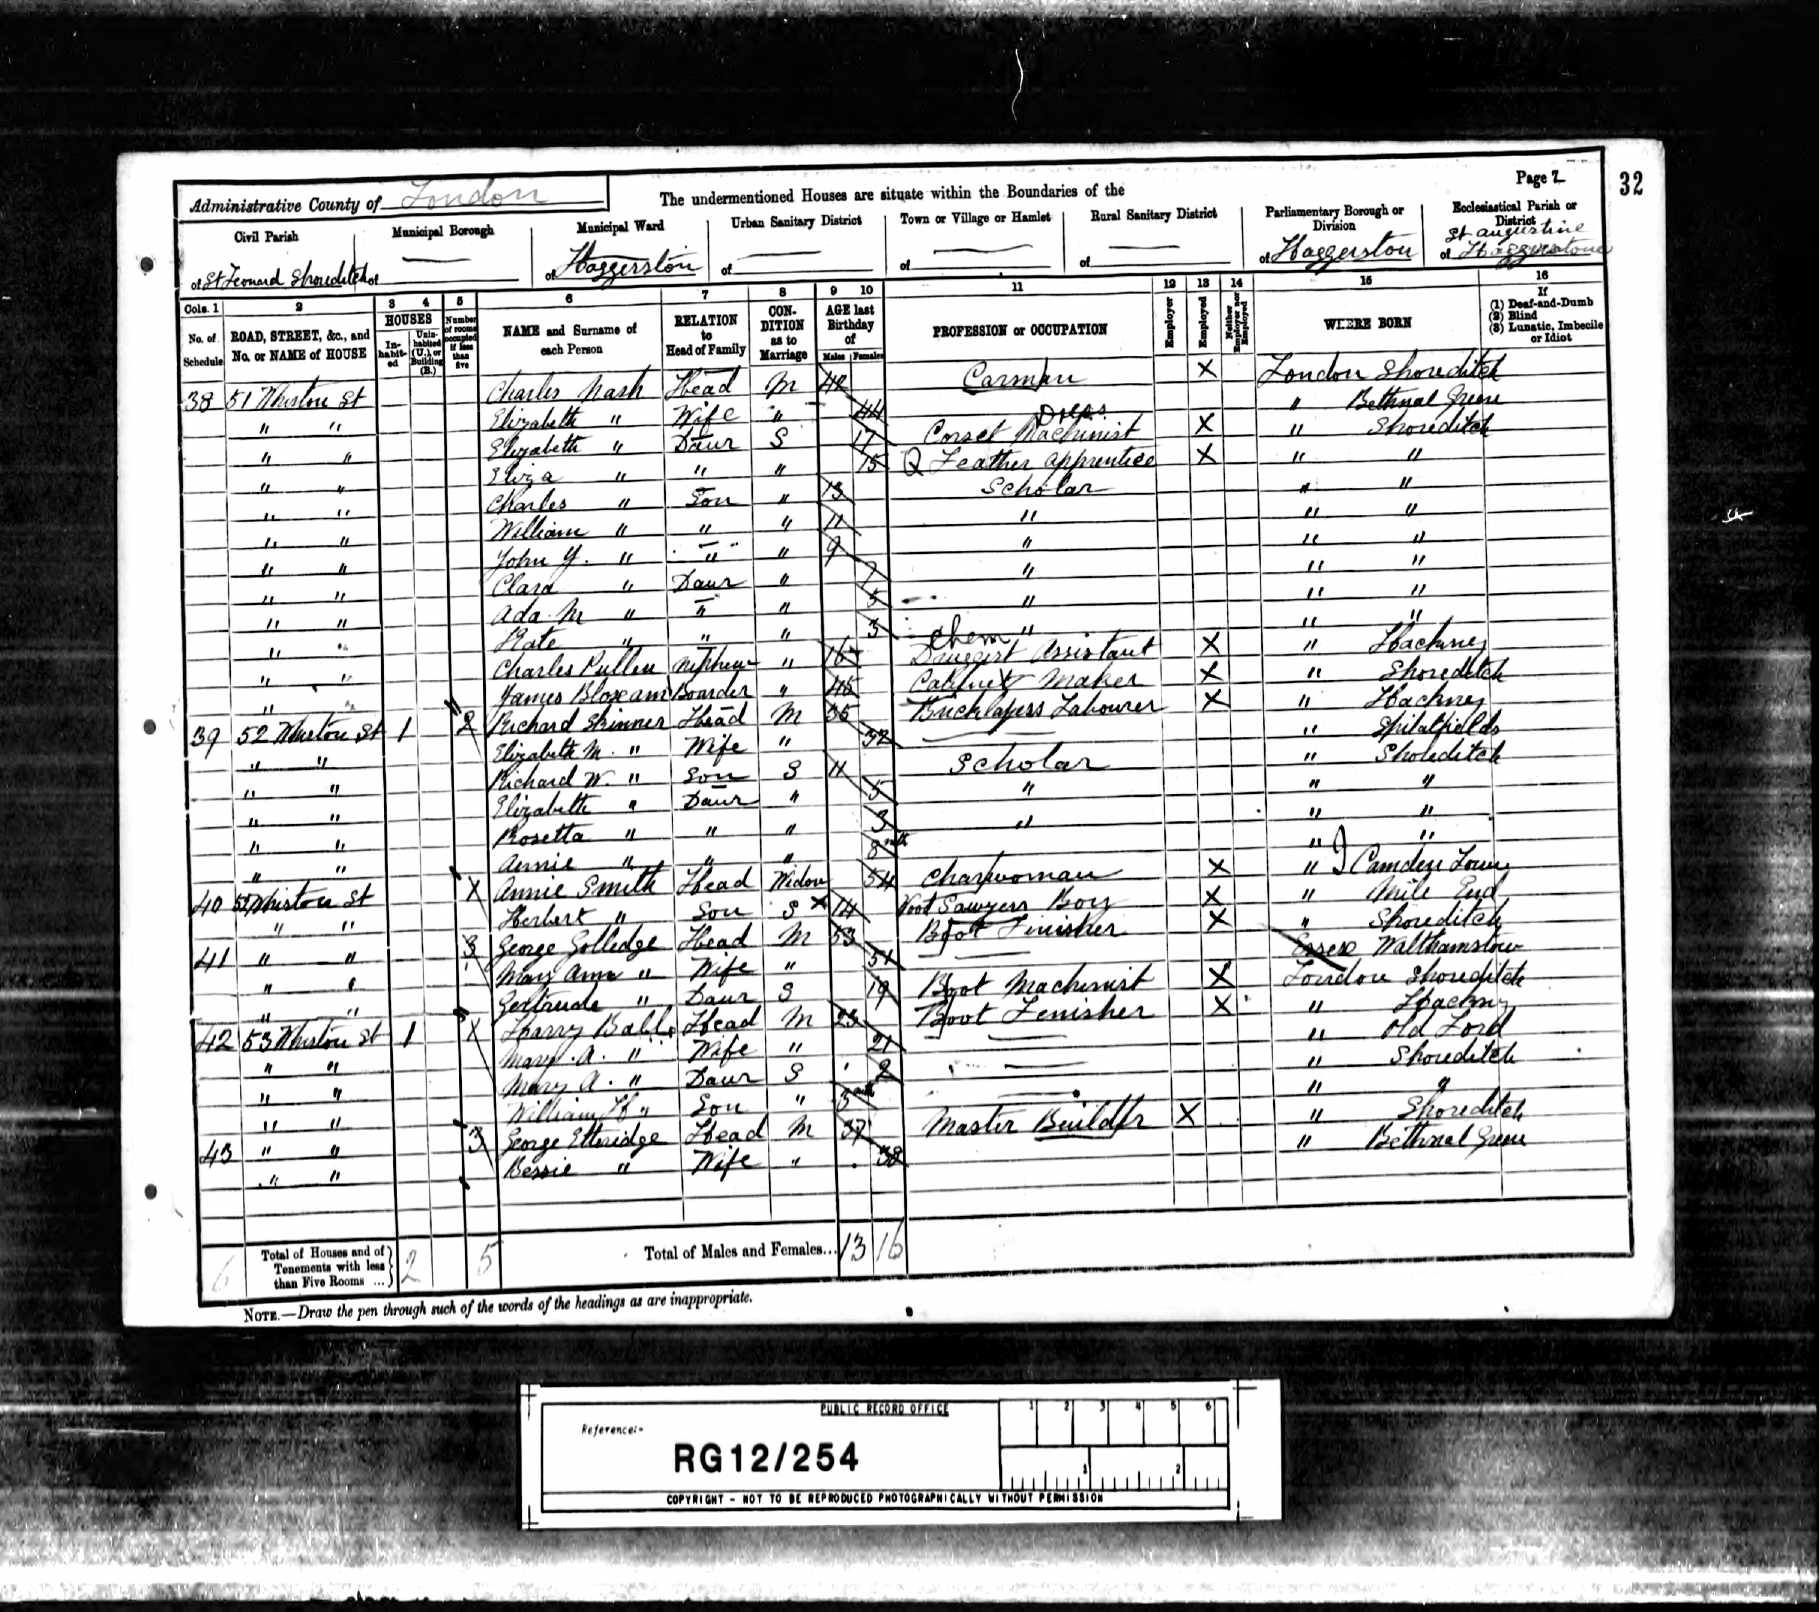 Page 7
32
Administrative County of London
The undermentioned Houses are situate within the Boundaries of the
Civil Parish
of St Leonard Shoreditch
Municipal Borough
of
Municipal Ward
of Haggerston
Urban Sanitary District
of
Town or Village or Hamlet
of
Rural Sanitary District
of
Parliamentary Borough or Division
of Haggerston
Ecclesiastical Parish or District
of St Augustine Haggerstone
Cols. 1 2 3 4 5 6 7 8 9 10 11 12 13 14 15 16
No. of Schedule
ROAD, STREET, &c., and No. or NAME of HOUSE
HOUSES
In-habit-ed
Unin-habited (U.), or Building (B.)
Number of rooms occupied if less than five
NAME and Surname of each Person
RELATION to Head of Family
CON-DITION as to Marriage
AGE last Birthday of
Males Females
PROFESSION or OCCUPATION
Employer
Employed
Neither Employer nor Employed
WHERE BORN
If
(1) Deaf-and-Dumb
(2) Blind
(3) Lunatic, Imbecile or Idiot
38 51 Whiston St Charles Nash Head M 42 Carman X London Shoreditch
" " Elizabeth " Wife " 44 " Bethnal Green
" " Elizabeth " Daur S 17 Corset Machinist X " Shoreditch
" " Eliza " " " 15 Feather apprentice X " "
" " Charles " Son " 13 Scholar " "
" " William " " " 11 " " "
" " John Y. " " " 9 " " "
" " Clara " Daur " 7 " " "
" " Ada M " " " 5 " " "
" " Kate " " " 3 " " "
" " Charles Pullen Nephew " 16 Chem Druggist Assistant X " Hackney
" " James Bloxam Boarder " 45 Cabinet Maker X " Shoreditch
39 52 Whiston St 1 2 Richard Skinner Head M 35 Bricklayers Labourer X " Hackney
" " Elizabeth M. " Wife " 32 " Spitalfields
" " Richard W. " Son S 11 Scholar " Shoreditch
" " Elizabeth " Daur " 5 " " "
" " Rosetta " " " 3 " " "
" " Annie " " " 8 mth " "
40 52 Whiston St X Annie Smith Head Widow 54 Charwoman X " Camden Town
" " Herbert " Son S 14 Sawyers Boy X " Mile End
41 " " 3 George Golledge Head M 53 Boot Finisher X " Shoreditch
" " Mary Ann " Wife " 51 Essex Walthamstow
" " Gertrude " Daur S 19 Boot Machinist X London Shoreditch
42 53 Whiston St 1 X Harry Balls Head M 23 Boot Finisher X " Hackney
" " Mary. A. " Wife " 21 " Old Ford
" " Mary A. " Daur S 2 " Shoreditch
" " William H " Son " 3 mth " "
43 " " 3 George Etteridge Head M 37 Master Builder X " Shoreditch
" " Bessie " Wife " 38 " Bethnal Green
6 Total of Houses and of Tenements with less than Five Rooms ... 2 5
Total of Males and Females... 13 16
NOTE.—Draw the pen through such of the words of the headings as are inappropriate.
PUBLIC RECORD OFFICE
Reference:-
RG12/254
1 2 3 4 5 6
1 2
COPYRIGHT - NOT TO BE REPRODUCED PHOTOGRAPHICALLY WITHOUT PERMISSION